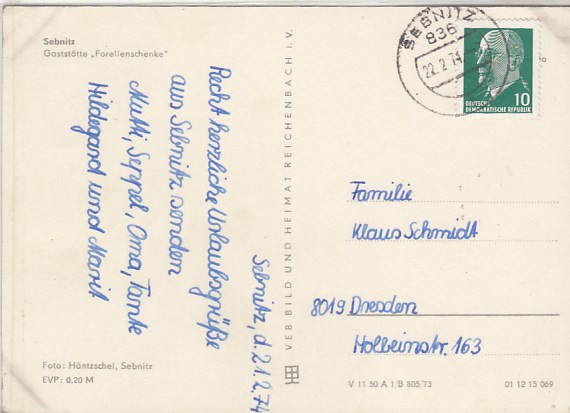 Sebnitz
Gaststätte „Forellenschenke"
Sebnitz, d. 21.2.74
Recht herzliche Urlaubsgrüße
aus Sebnitz senden
Mutti, Seppel, Oma, Tante
Hildegard und Marit
Foto: Häntzschel, Sebnitz
EVP: 0,20 M
VEB BILD UND HEIMAT REICHENBACH i. V.
SEBNITZ
836
22.2.74
DEUTSCHE
DEMOKRATISCHE REPUBLIK
10
Familie
Klaus Schmidt
8019 Dresden
Holbeinstr. 163
V 11 50 A 1/B 805/73
01 12 15 069